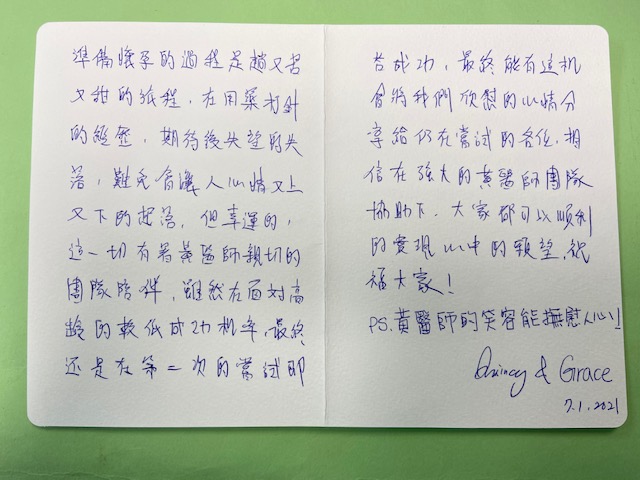 準備懷孕的過程是趟又苦
又甜的旅程，在用藥打針
的經歷，期待後失望的失
落，難免會讓人心情又上
又下的起落，但幸運的，
這一切有著黃醫師親切的
團隊陪伴，雖然在面對高
齡的較低成功机率，最終
还是在第二次的嘗試即
告成功，最終能有這机
會將我們欣慰的心情分
享給仍在嘗試的各位，相
信在強大的黃醫師團隊
協助下，大家都可以順利
的實現心中的願望，祝
福大家！
PS.黃醫師的笑容能撫慰人心!
Quincy & Grace
7.1.2021